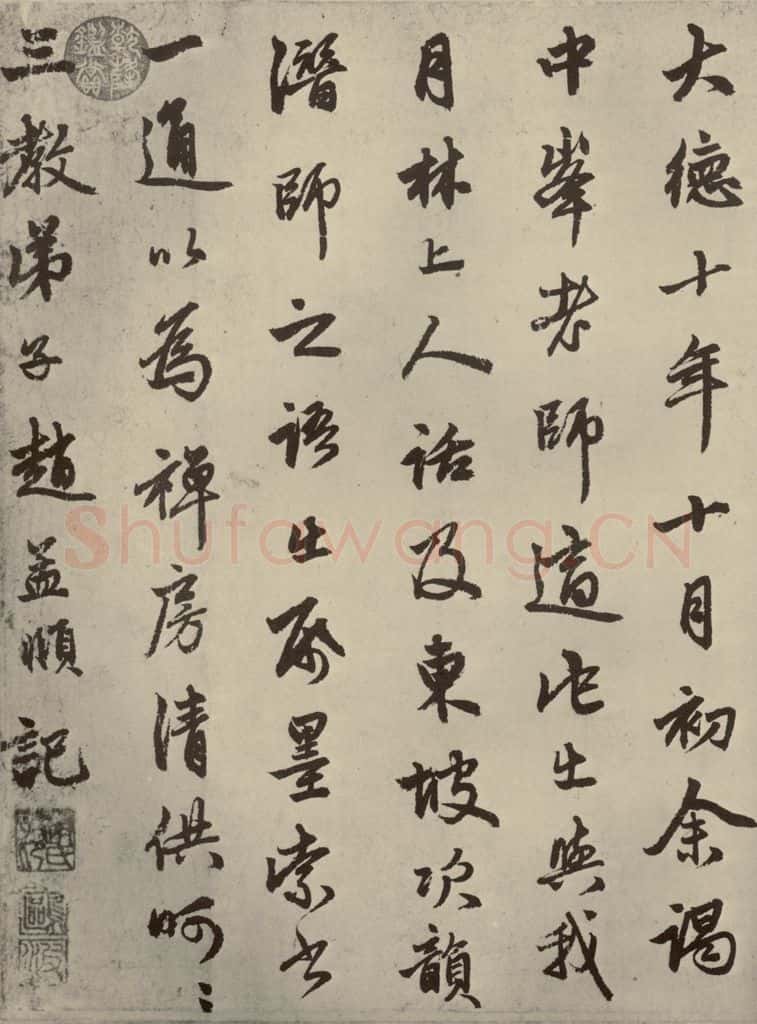 大德十年十月初余謁
中峯老師適他出與我
月林上人話及東坡次韻
潛師之語出帋墨索書
一通以為禪房清供呵〻
三教弟子趙孟頫記
乾隆鑑賞
鷗波
Shufawang.CN